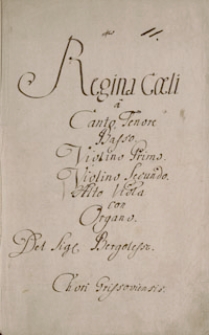 11.
Regina Cœli
â
Canto, Tenore
Basso.
Violino Primo.
Violino Secundo.
Alto Viola
con
Organo.
Del Sig.
Chori Grissoviensis.